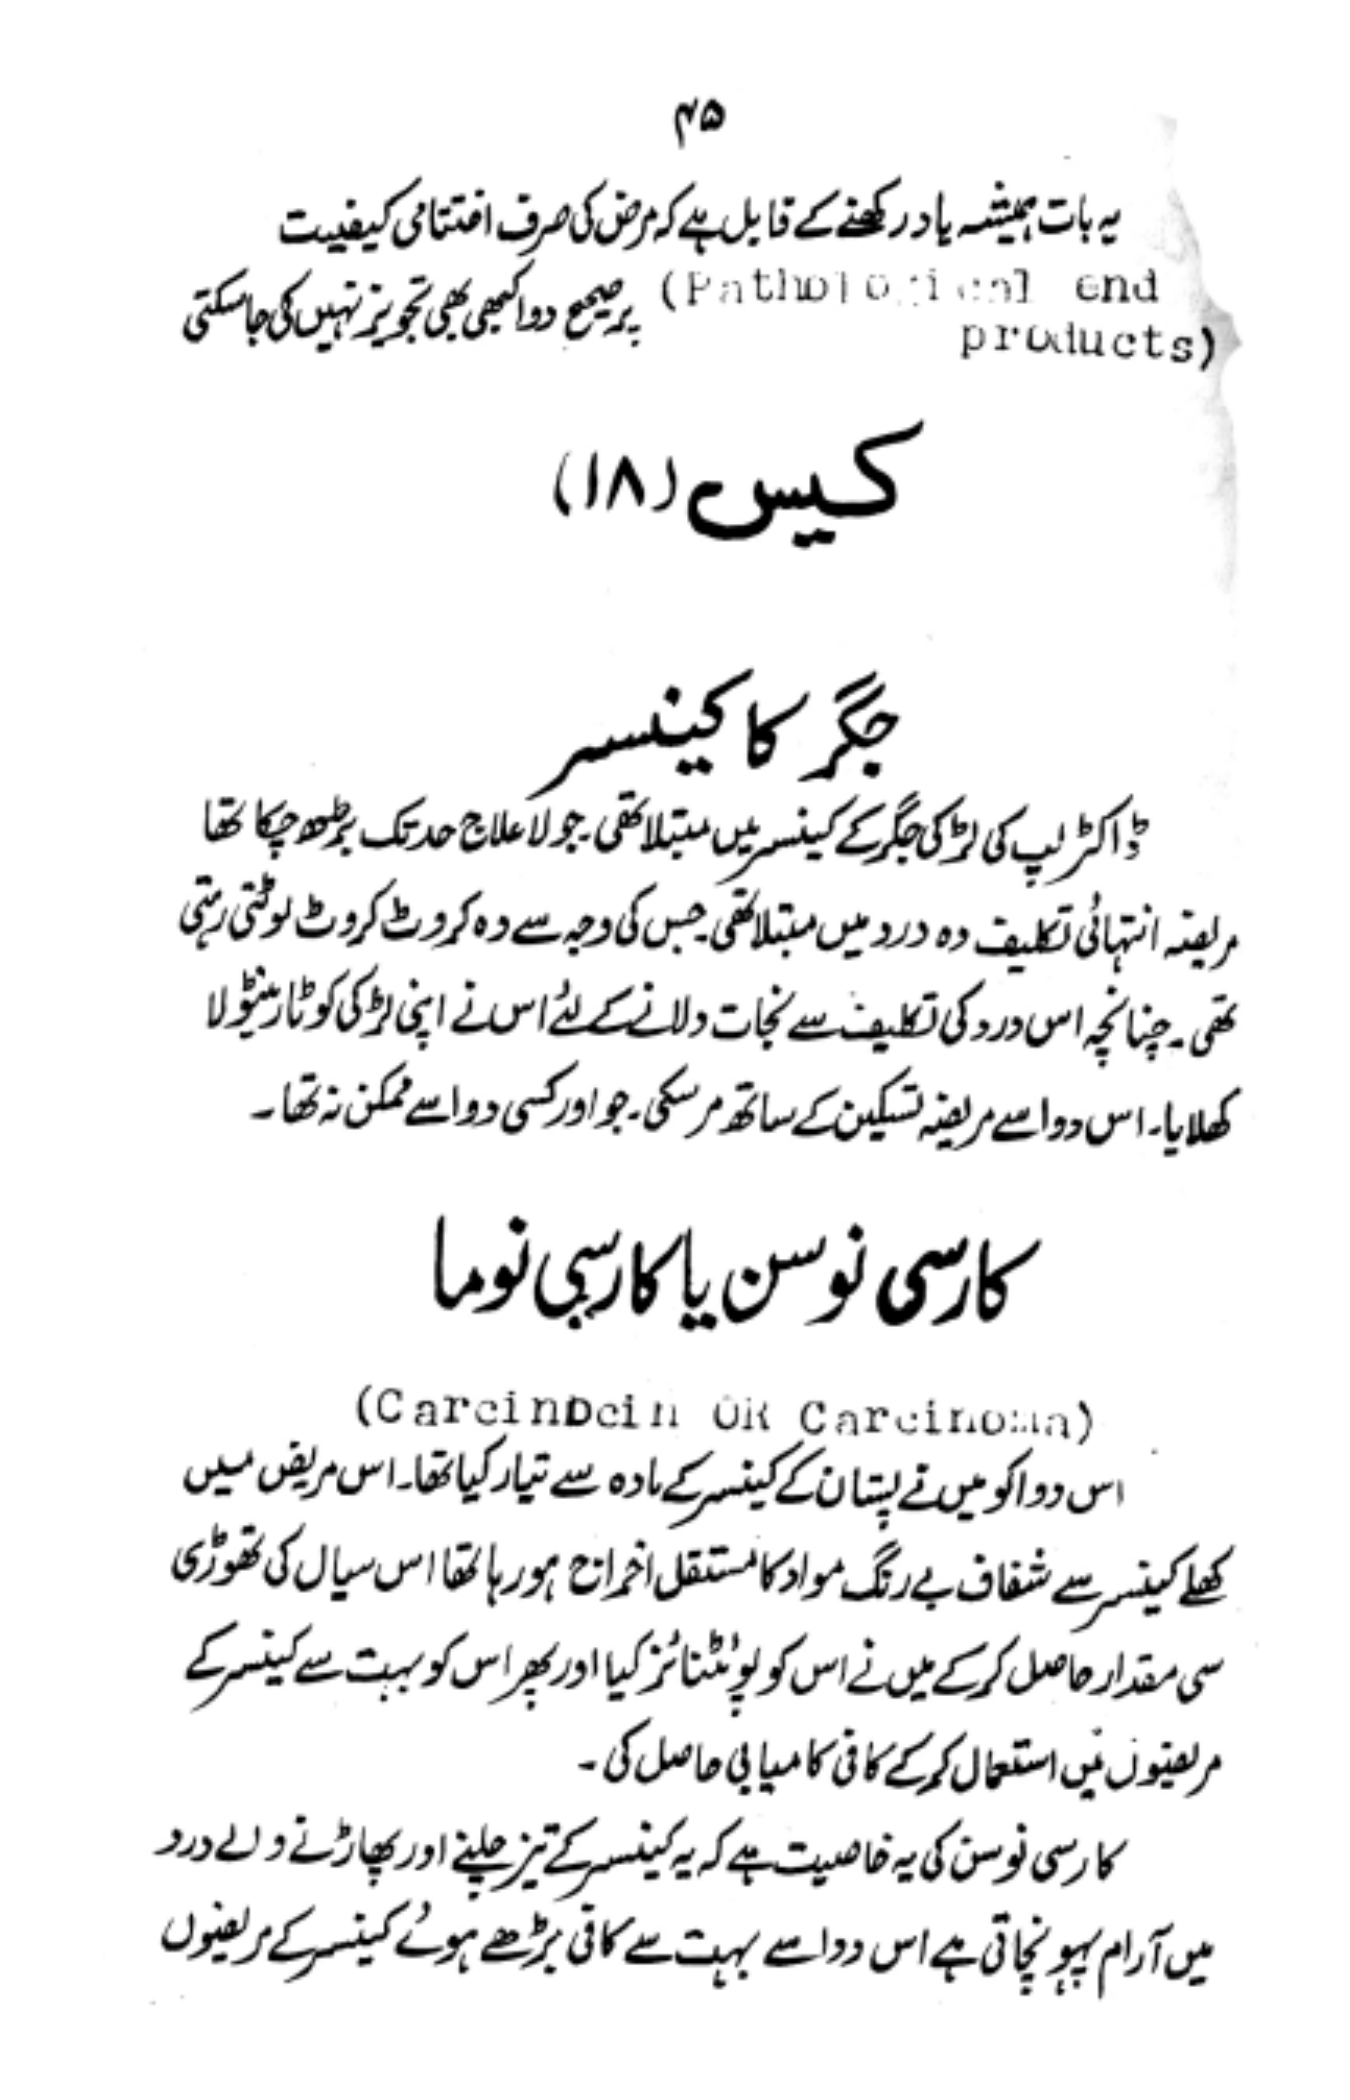 ۴۵
یہ بات ہمیشہ یاد رکھنے کے قابل ہے کہ مرض کی صرف اختتامی کیفیت
(Pathological end
products) پر صحیح دوا کبھی بھی تجویز نہیں کی جاسکتی
کیس (۱۸)
جگر کا کینسر
ڈاکٹر لپ کی لڑکی جگر کے کینسر میں مبتلا تھی۔ جو لاعلاج حد تک بڑھ چکا تھا
مریضہ انتہائی تکلیف دہ درد میں مبتلا تھی۔ جس کی وجہ سے وہ کروٹ کروٹ لوٹتی رہتی
تھی۔ چنانچہ اس درد کی تکلیف سے نجات دلانے کے لئے اس نے اپنی لڑکی کو ٹارینٹولا
کھلایا۔ اس دوا سے مریضہ تسکین کے ساتھ مرسکی۔ جو اور کسی دوا سے ممکن نہ تھا۔
کارسی نوسن یا کارسی نوما
(Carcinocin OR Carcinoma)
اس دوا کو میں نے پستان کے کینسر کے مادہ سے تیار کیا تھا۔ اس مریض میں
کھلے کینسر سے شفاف بے رنگ مواد کا مستقل اخراج ہو رہا تھا اس سیال کی تھوڑی
سی مقدار حاصل کر کے میں نے اس کو پوٹنٹائز کیا اور پھر اس کو بہت سے کینسر کے
مریضوں میں استعمال کر کے کافی کامیابی حاصل کی۔
کارسی نوسن کی یہ خاصیت ہے کہ یہ کینسر کے تیز جلنے اور پھاڑنے والے درد
میں آرام پہونچاتی ہے اس دوا سے بہت سے کافی بڑھے ہوئے کینسر کے مریضوں